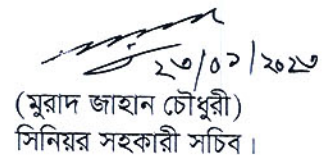 ২৩/০১/২০২৩
(মুরাদ জাহান চৌধুরী)
সিনিয়র সহকারী সচিব।